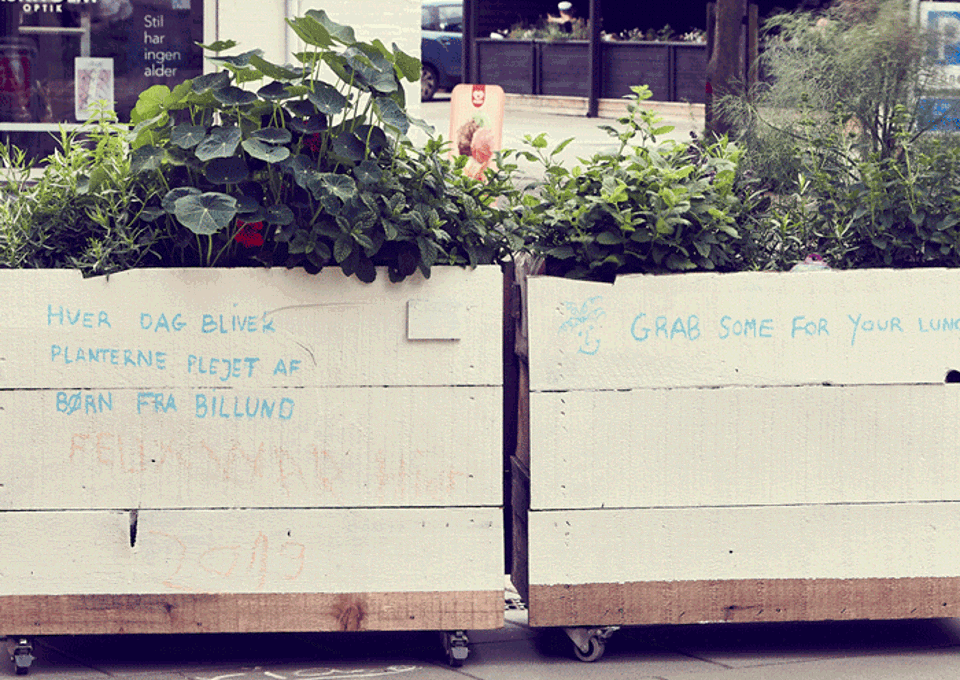 OPTIK
Stil
har
ingen
alder
HVER DAG BLIVER
PLANTERNE PLEJET AF
BØRN FRA BILLUND
GRAB SOME FOR YOUR LUNC